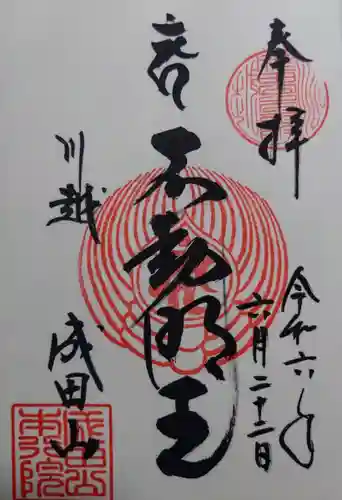 奉拝
令和六年
六月二十二日
不動明王
川越
成田山
本行院